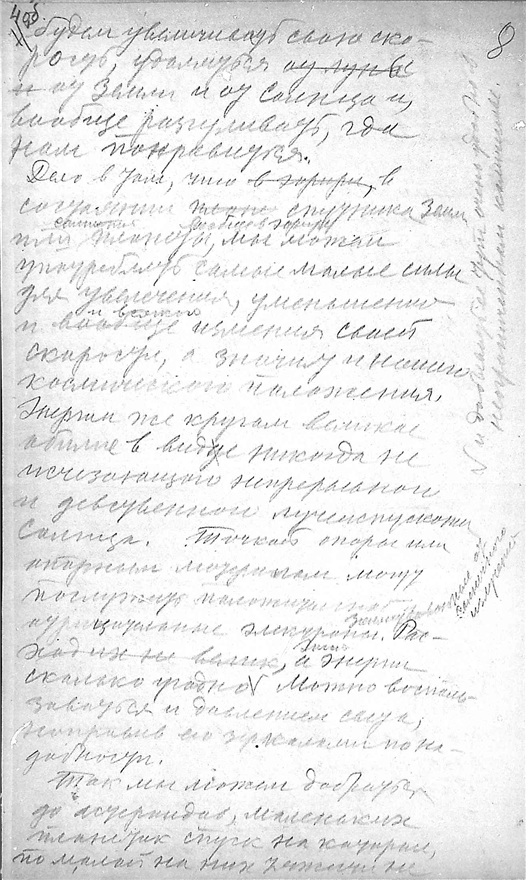 4об.
8
будем увеличивать свою ско-
рость, удаляться от луны
и от Земли и от Солнца и,
вообще разгуливать, где
нам понравится.
Дело в том, что в эфире, в
состоянии спутника Земли
или планеты, мы можем
вообще в эфире
употреблять самые малые силы
для увеличения, уменьшения
и всякого
и вообще изменения своей
скорости, а значит и нашего
космического положения.
Энергии же кругом великое
обилие в виде никогда не
исчезающего непрерывного
и девственного лучеиспускания
Солнца. Точкой опоры или
опорным материалом могут
послужить
отрицательные электроны. Рас-
ход их не велик, а энергии
сколько угодно Можно восполь-
зоваться и давлением света,
направив его зеркалами по на-
добности.
Так мы можем добраться
до астероидов, маленьких
планеток спуск на которые,
по малой на них тяжести не